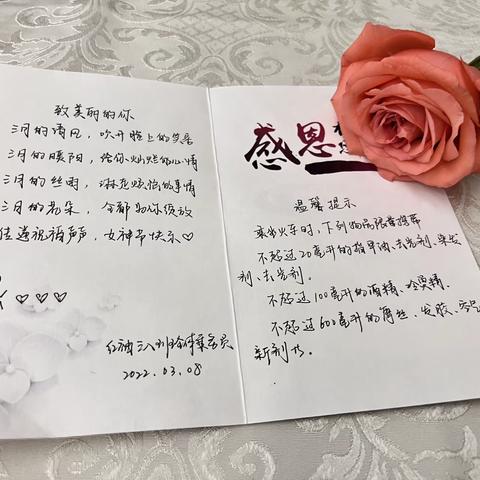 致美丽的你
三月的清风，吹开脸上的笑容
三月的暖阳，给你灿烂的心情
三月的丝雨，淋走烦恼的事情
三月的花朵，全部为你绽放
佳遥祝福声声，女神节快乐♡
♡♡♡
红油三八班全体乘务员
2022.03.08
感恩
温馨提示
乘坐火车时，下列物品限量携带
不超过20毫升的指甲油、去光剂、染发
剂、去光剂。
不超过100毫升的酒精、冷烫精。
不超过600毫升的摩丝、发胶、空气
新剂等。